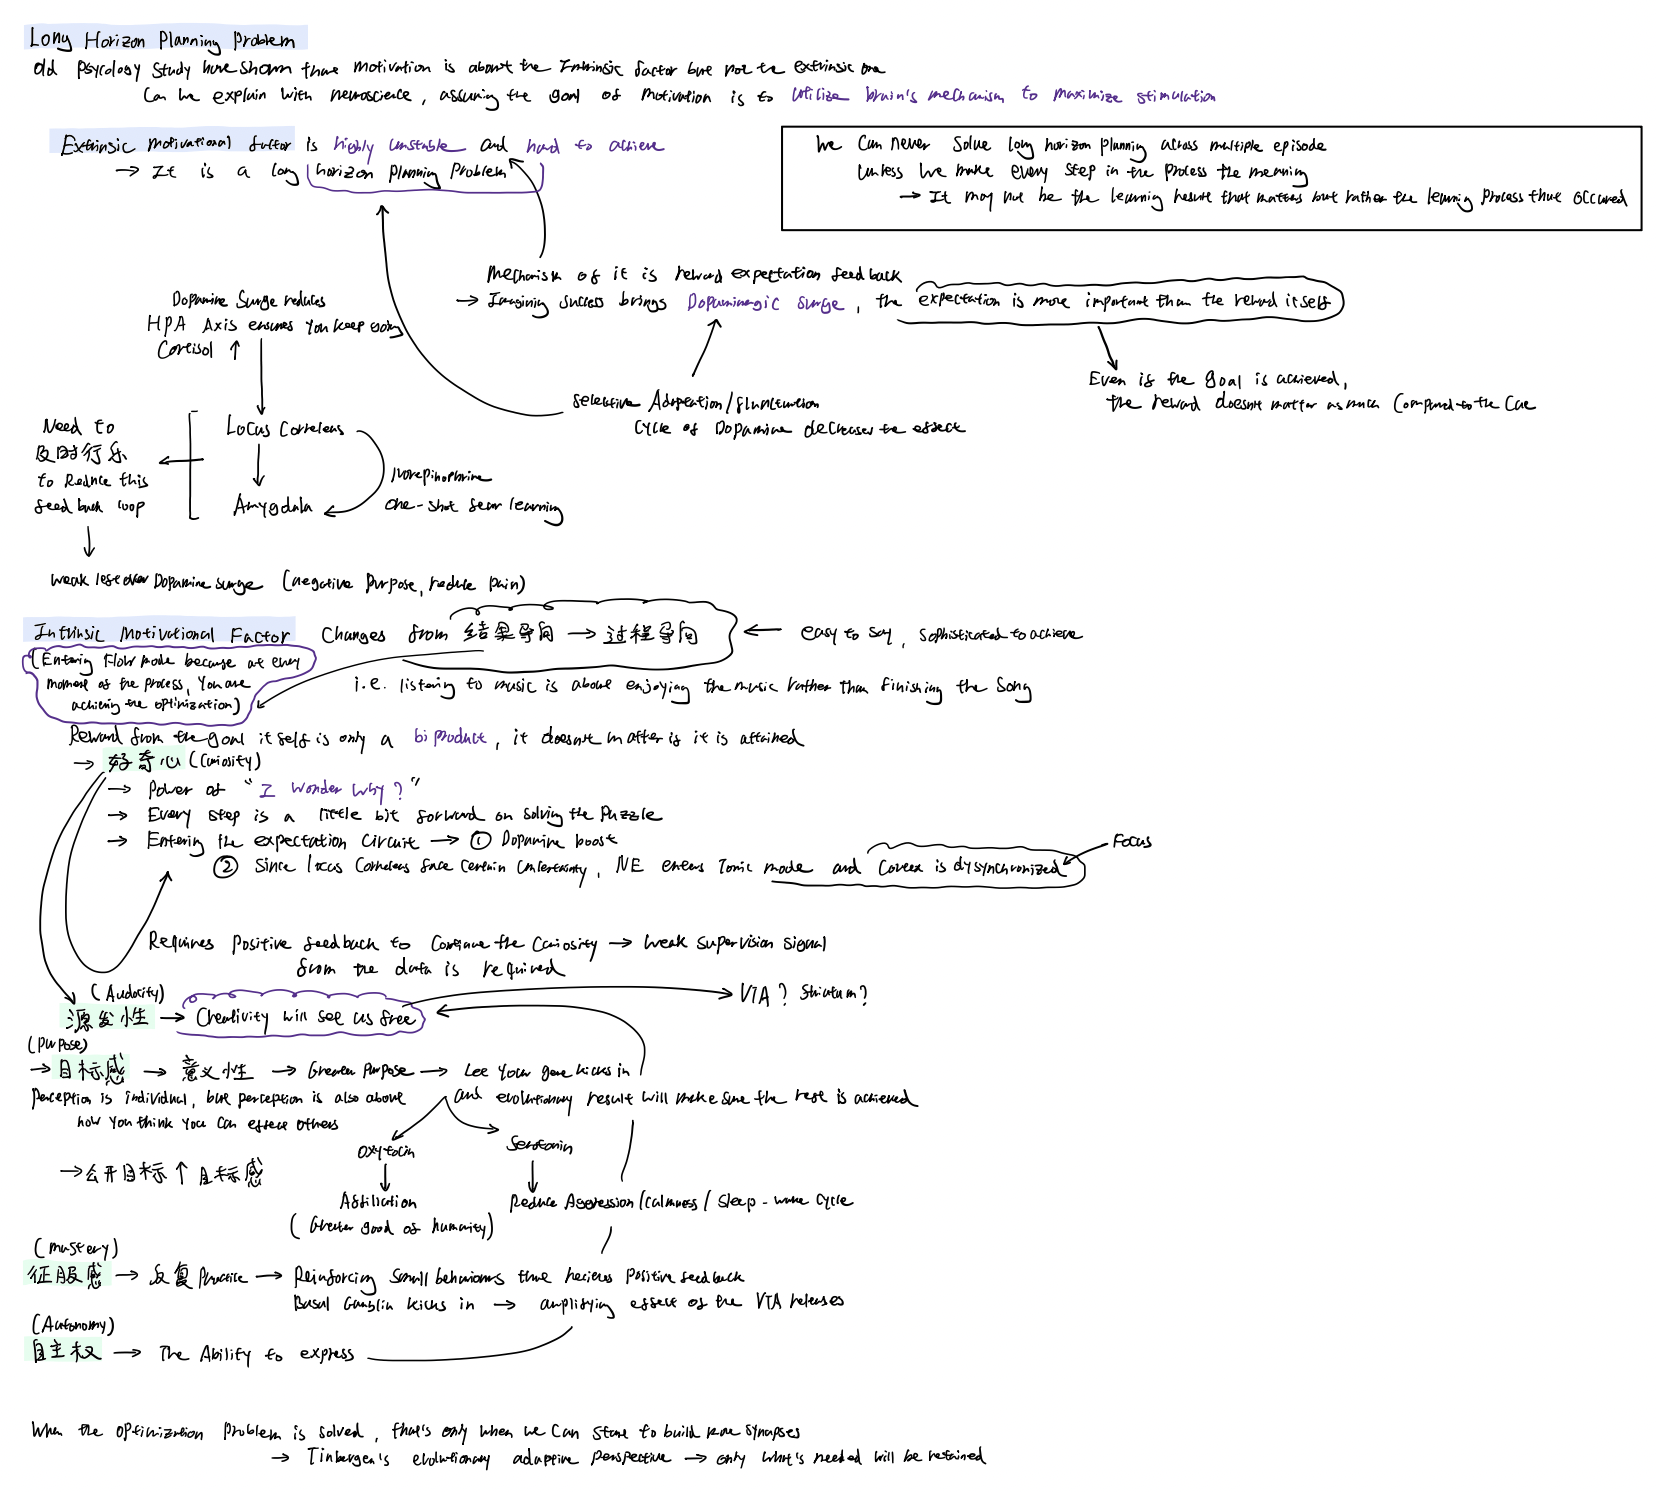 Long Horizon Planning Problem
Old Psycology Study have shown that Motivation is about the Intrinsic factor but not the extrinsic one
Can we explain with neuroscience, assuming the goal of motivation is to utilize brain's mechanism to maximize stimulation
Extrinsic motivational factor is highly unstable and hard to achieve
→ It is a long horizon planning problem
We can never solve long horizon planning across multiple episode
unless we make every step in the process the meaning
→ It may not be the learning result that matters but rather the learning process that occured
Mechanism of it is reward expectation feedback
→ Imagining success brings Dopaminergic surge, the expectation is more important than the reward itself
Even if the goal is achieved,
the reward doesn't matter as much compared to the cue
Selective Adaptation/fluctuation
cycle of Dopamine decreases the effect
Dopamine surge reduces
HPA Axis ensures you keep going
Cortisol ↑
Locus Coeruleus
Amygdala
Norepinephrine
one-shot fear learning
Need to
及时行乐
to Reduce this
feedback loop
weak left over Dopamine surge (negative purpose, reduce pain)
Intrinsic Motivational Factor Changes from 结果导向 → 过程导向 ← easy to say, sophisticated to achieve
(Entering Flow mode because at every
moment of the process, you are
achieving the optimization)
i.e. listening to music is about enjoying the music rather than finishing the song
Reward from the goal itself is only a biproduct, it doesn't matter if it is attained
→ 好奇心 (Curiosity)
→ Power of "I wonder why?"
→ Every step is a little bit forward on solving the puzzle
→ Entering the expectation circuit → ① Dopamine boost
② Since locus Coeruleus face certain uncertainty, NE enters Tonic mode and Cortex is dysynchronized
Focus
Requires positive feedback to continue the curiosity → weak supervision signal
from the data is required
(Audacity)
源发性 → Creativity will set us free
VTA? Striatum?
(Purpose)
→ 目标感 → 意义性 → Greater Purpose → Let your gene kicks in
and evolutionary result will make sure the rest is achieved
Perception is individual, but perception is also about
how you think you can effect others
Oxytocin
Affiliation
(Greater good of humanity)
Serotonin
Reduce Aggression/Calmness/Sleep-wake cycle
→ 公开目标 ↑ 目标感
(Mastery)
征服感 → 反复Practice → Reinforcing small behaviours that recieves positive feedback
Basal Ganglia kicks in → amplifying effect of the VTA releases
(Autonomy)
自主权 → The Ability to express
When the optimization problem is solved, that's only when we can start to build more synapses
→ Tinbergen's evolutionary adaptive perspective → only what's needed will be retained